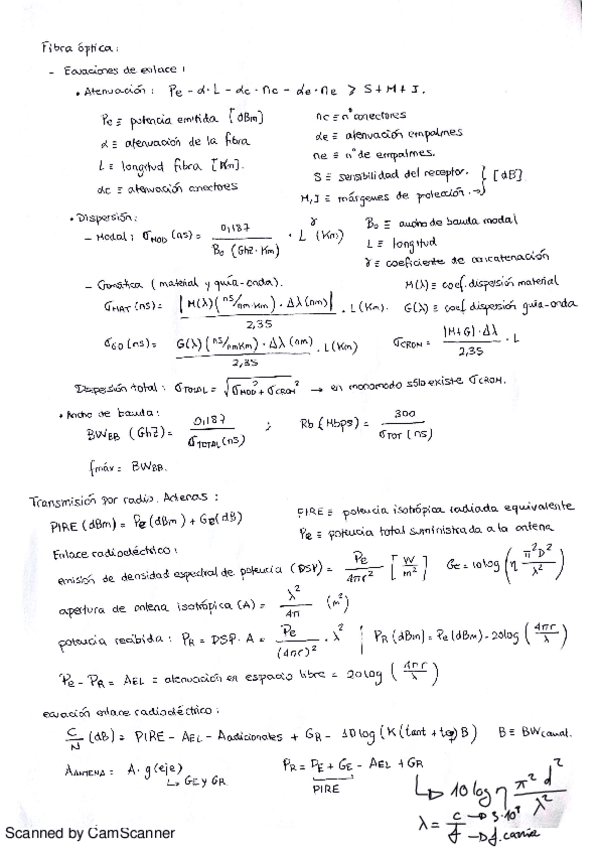 Fibra óptica:
- Ecuaciones de enlace:
• Atenuación: Pe - α·L - αc·nc - αe·ne ≥ S+M+I.
Pe ≡ potencia emitida [dBm]
nc ≡ nº conectores
α ≡ atenuación de la fibra
αe ≡ atenuación empalmes
L ≡ longitud fibra [Km].
ne ≡ nº de empalmes.
αc ≡ atenuación conectores
S ≡ sensibilidad del receptor. } [dB]
M, I ≡ márgenes de protección.
• Dispersión:
- Modal: σMOD (ns) = 0,187 / B₀ (GHz·Km) · L^γ (Km)
B₀ ≡ ancho de banda modal
L ≡ longitud
γ ≡ coeficiente de concatenación
- Cromática (material y guía-onda).
M(λ) ≡ coef. dispersión material
σMAT (ns) = |M(λ)(ns/nm·Km)·Δλ(nm)| / 2,35 · L(Km).
G(λ) ≡ coef dispersión guía-onda
σGO (ns) = G(λ)(ns/nmKm)·Δλ(nm) / 2,35 · L(Km)
σCROM = |M+G|·Δλ / 2,35 · L
Dispersión total: σTOTAL = √(σMOD² + σCROM²) → en monomodo sólo existe σCROM.
• Ancho de banda:
BWBB (GHz) = 0,187 / σTOTAL(ns) ; Rb (Mbps) = 300 / σTOT (ns)
fmáx = BWBB.
Transmisión por radio. Antenas:
PIRE (dBm) = Pe(dBm) + Ge(dB)
PIRE ≡ potencia isotrópica radiada equivalente
Pe ≡ potencia total suministrada a la antena
Enlace radioeléctrico:
emisión de densidad espectral de potencia (DSP) = Pe / 4πr² [W/m²] Ge = 10log(η π²D²/λ²)
apertura de antena isotrópica (A) = λ²/4π (m²)
potencia recibida: PR = DSP·A = Pe/(4πr)² · λ² | PR(dBm) = Pe(dBm) - 20log(4πr/λ)
Pe - PR = AEL = atenuación en espacio libre = 20log(4πr/λ)
ecuación enlace radioeléctrico:
C/N (dB) = PIRE - AEL - Aadicionales + GR - 10log(K(tant + teq)B) B ≡ BWcanal.
AANTENA = A·g(eje)
↳ GE y GR
PR = PE + GE - AEL + GR
PIRE
↳ 10log η π²d²/λ²
λ = c/f → 3·10⁸
→ f. canía
Scanned by CamScanner